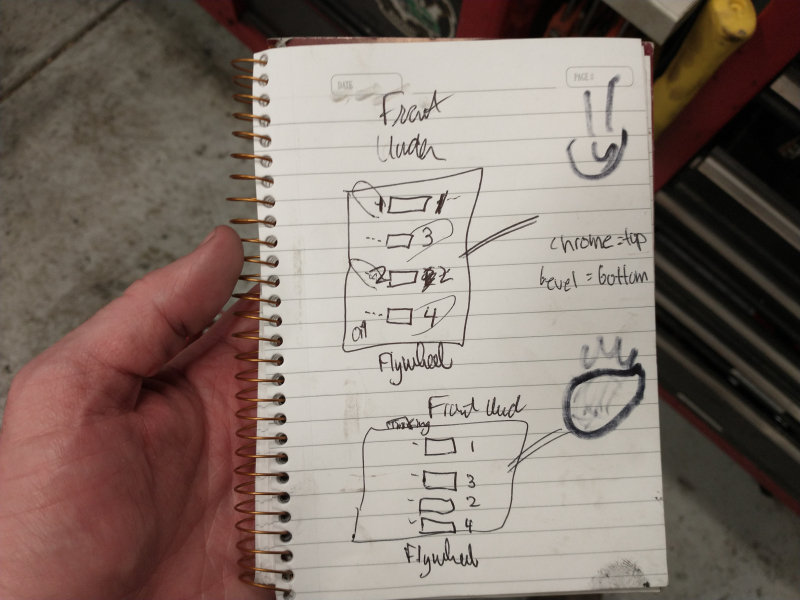 DATE
PAGE
Front
Under
1
3
2 2
4
oil
Flywheel
chrome=top
bevel=bottom
Front Und
1
3
2
4
Flywheel